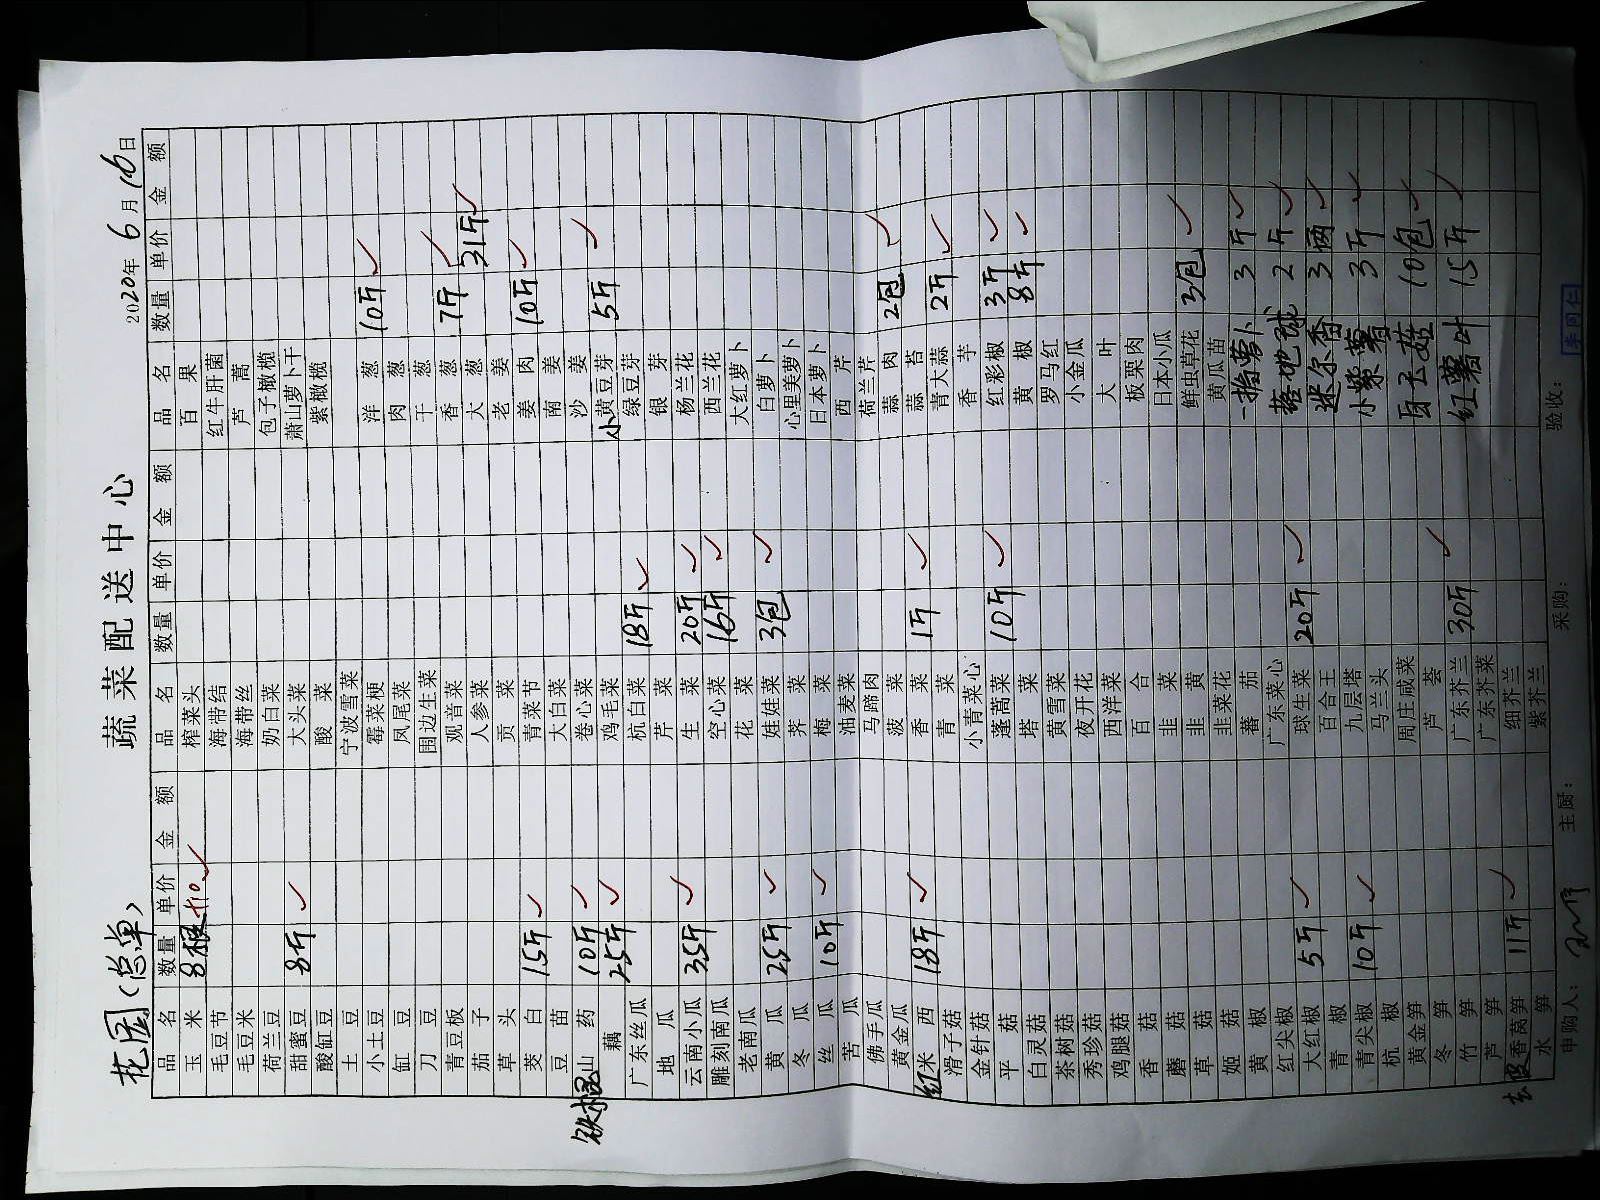 花园(总单)
蔬菜配送中心
2020年6月16日
品名 数量 单价 金额 品名 数量 单价 金额 品名 数量 单价 金额
玉米 8根 榨菜头 百果
毛豆节 海带结 红牛肝菌
毛豆米 海带丝 芦蒿
荷兰豆 奶白菜 包子橄榄
甜蜜豆 8斤 大头菜 萧山萝卜干
酸缸豆 酸菜 紫橄榄
土豆 宁波雪菜
小土豆 霉菜梗 洋葱 10斤
缸豆 凤尾菜 肉葱
刀豆 围边生菜 干葱
青豆板 观音菜 香葱 7斤
茄子 人参菜 大葱 31斤
草头 贡菜 老姜
茭白 15斤 青菜节 姜肉 10斤
豆苗 大白菜 南姜
铁棍山药 10斤 卷心菜 沙姜
藕 25斤 鸡毛菜 小黄豆芽 5斤
广东丝瓜 杭白菜 18斤 绿豆芽
地瓜 芹菜 银芽
云南小瓜 35斤 生菜 20斤 杨兰花
雕刻南瓜 空心菜 16斤 西兰花
老南瓜 花菜 大红萝卜
黄瓜 25斤 娃娃菜 3包 白萝卜
冬瓜 荠菜 心里美萝卜
丝瓜 10斤 梅菜 日本萝卜
苦瓜 油麦菜 西芹
佛手瓜 马蹄肉 荷兰芹
黄金瓜 菠菜 蒜肉 2包
红米西 18斤 香菜 1斤 蒜苔
滑子菇 青菜 青大蒜 2斤
金针菇 小青菜心 香芋
平菇 蓬蒿菜 10斤 红彩椒 3斤
白灵菇 塔菜 黄椒 8斤
茶树菇 黄雪菜 罗马红
秀珍菇 夜开花 小金瓜
鸡腿菇 西洋菜 大叶
香菇 百合 板栗肉
磨菇 韭菜 日本小瓜
草菇 韭黄 鲜虫草花 3包
姬菇 韭菜花 黄瓜苗
黄椒 蕃茄 一指萝卜 3斤
红尖椒 广东菜心 落地球 2斤
大红椒 5斤 球生菜 20斤
青椒 百合王 迷尔番 3两
青尖椒 10斤 九层塔 小紫薯 3斤
杭椒 马兰头
黄金笋 周庄咸菜 白玉菇 10包
冬笋 芦荟
竹笋 广东芥兰 30斤 红薯叶 15斤
芦笋 广东芥菜
去皮香莴笋 11斤 细芥兰
水笋 紫芥兰
申购人: 主厨: 采购: 验收: